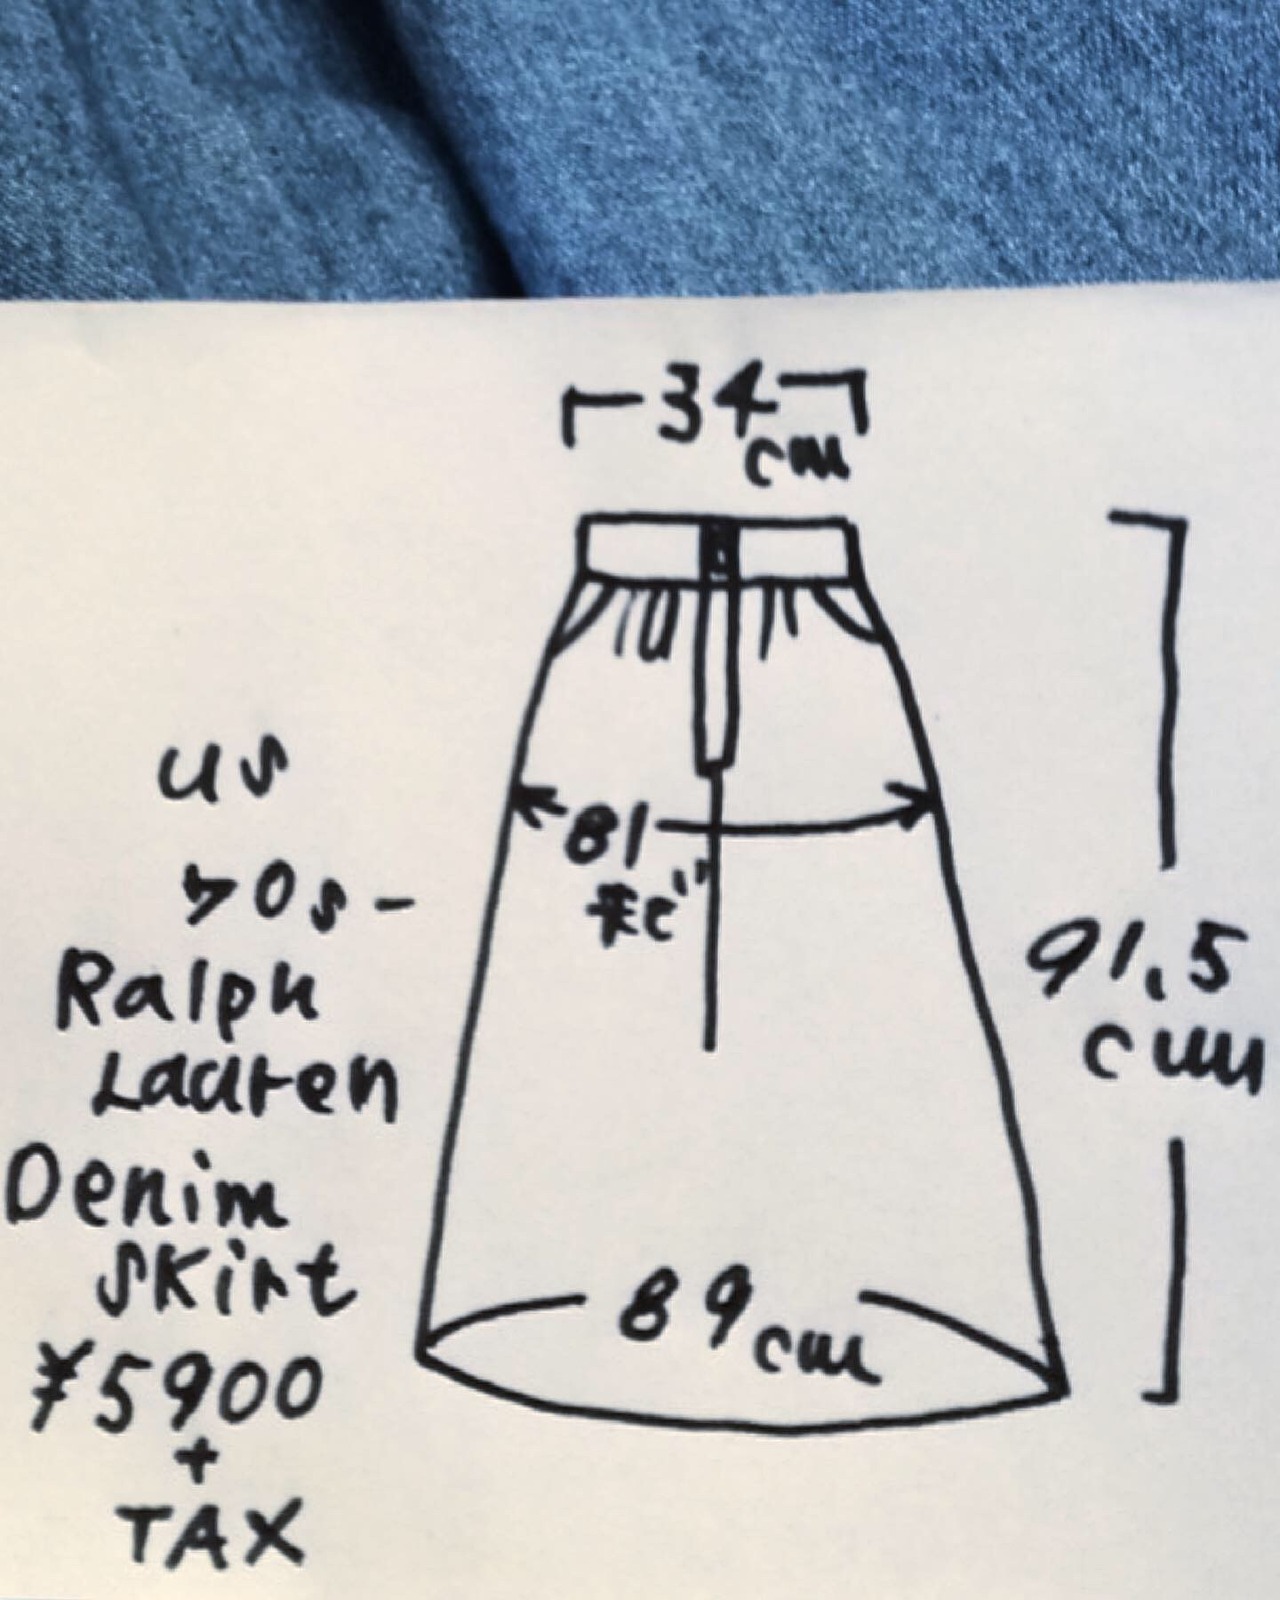 34
cm
us
70s-
Ralph
Lauren
Denim
skirt
¥5900
+
TAX
81
まで
91.5
cm
89cm